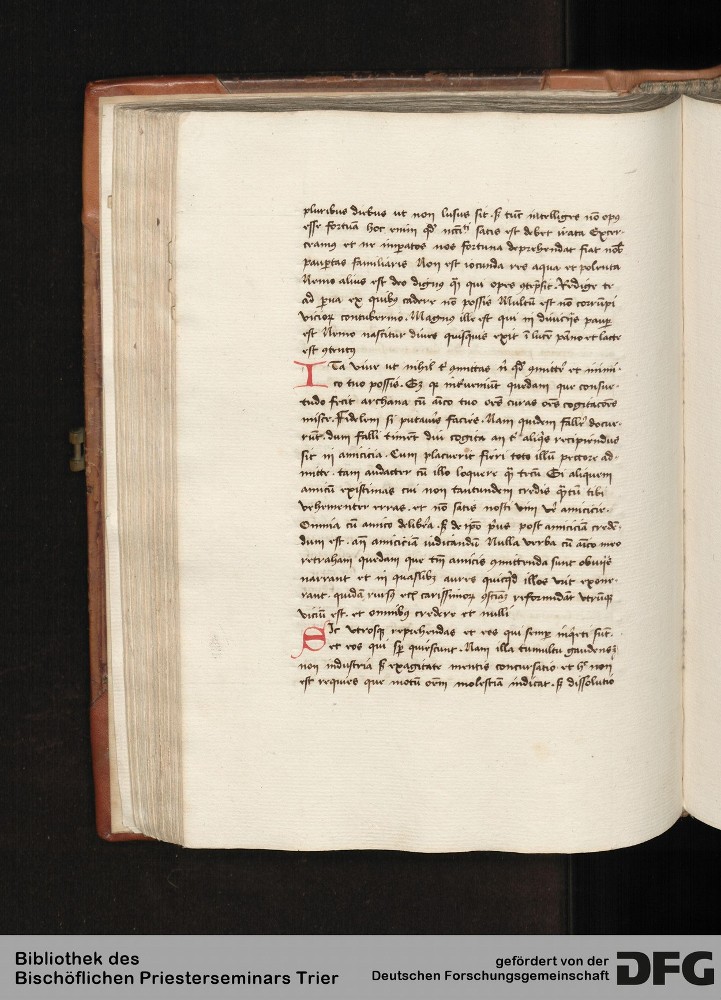 pluribus diebus ut non lusus sit. sꝫ tūc intelliges nō opꝰ
esse fortūa hoc enim qđ satis est debet irata Exer
ceamꝰ et ne imparatos nos fortuna deprehendat fiat nob̄
paupertas familiaris Non est iocunda res aqua et polenta
Nemo alius est deo dignꝰ qͥ qui opes ꝯtēpsit. Redige te
ad pͣua ex quibꝰ cadere nō possis Multū est nō corrūpi
viciorꝝ contubernio. Magnꝰ ille est qui in diuicijs paupꝫ
est Nemo nascitur diues quisquis exit ī lucē pāno et lacte
est ꝯtentꝰ
ITa viue ut nihil tͥ ꝯmittas nͥ qđ ꝯmittͤ et inimi
co tuo possis. Sꝫ qꝛ inteͬueniūt quedam que consue
tudo fecit archana cū aīco tuo oēs curas oēs cogitacōes
misce. Fidelem si putauis facies. Nam quidem fallͤ docue
rūt. dum falli timēt diu cogita an tͥ aliqͥs recipiendus
sit in amicicia. Cum placuerit fieri toto illū pectore ad
mitte. tam audacter cū illo loquere qͣ tecū. Si aliquem
amicū existimas cui non tantundem credis qͣtū tibi
vehementer erras. et nō satis nosti vim veͬ amicicie.
Omnia cū amico deliberͣa. sꝫ de ip̄o pͥus post amiciciā credē
dum est. an̄ amiciciā iudicandū Nulla verba cū aīco meo
retraham quedam que tm̄ amicis ꝯmittenda sunt obuijs
narrant et in quaslibꝫ aures quicqͥd illos urit exone
rant. quidā rursꝰ ecͥ carissimorꝝ ꝯsciāꝫ reformidāt vtrūqꝫ
viciū est. et omnibꝰ credere et nulli
SIc vtrosqꝫ reprehendas et eos qui sempꝫ inqͥeti sūt.
et eos qui sꝑ quiescunt. Nam illa tumultu gaudensꝫ
non industria sꝫ exagitate mentis concursatio. et hͨ non
est requies que motū oēm molestiā iudicat. sꝫ dissolutio
Bibliothek des
Bischöflichen Priesterseminars Trier
gefördert von der
Deutschen Forschungsgemeinschaft
DFG